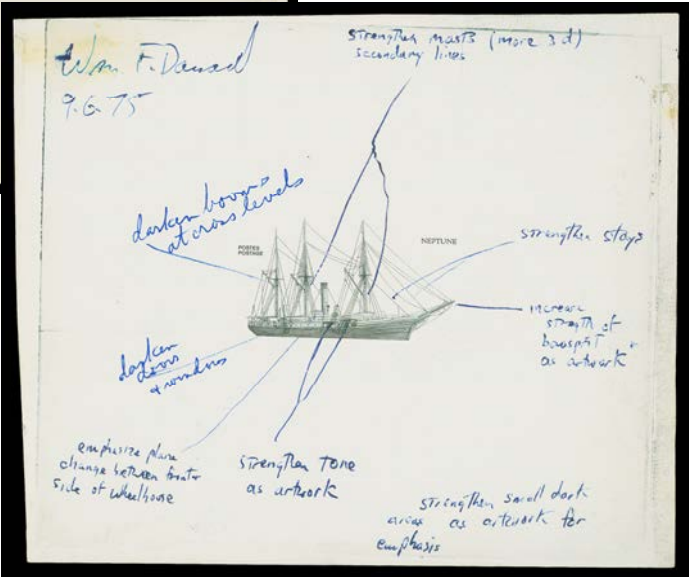 Wm F. Dawson
9.6.75
strengthen masts (more 3 d)
secondary lines
darken booms
at cross levels
POSTES
POSTAGE
NEPTUNE
strengthen stays
increase
strength of
bowsprit
as artwork
darken
doors
& windows
emphasize plane
change between front &
side of wheelhouse
strengthen tone
as artwork
strengthen small dark
areas as artwork for
emphasis